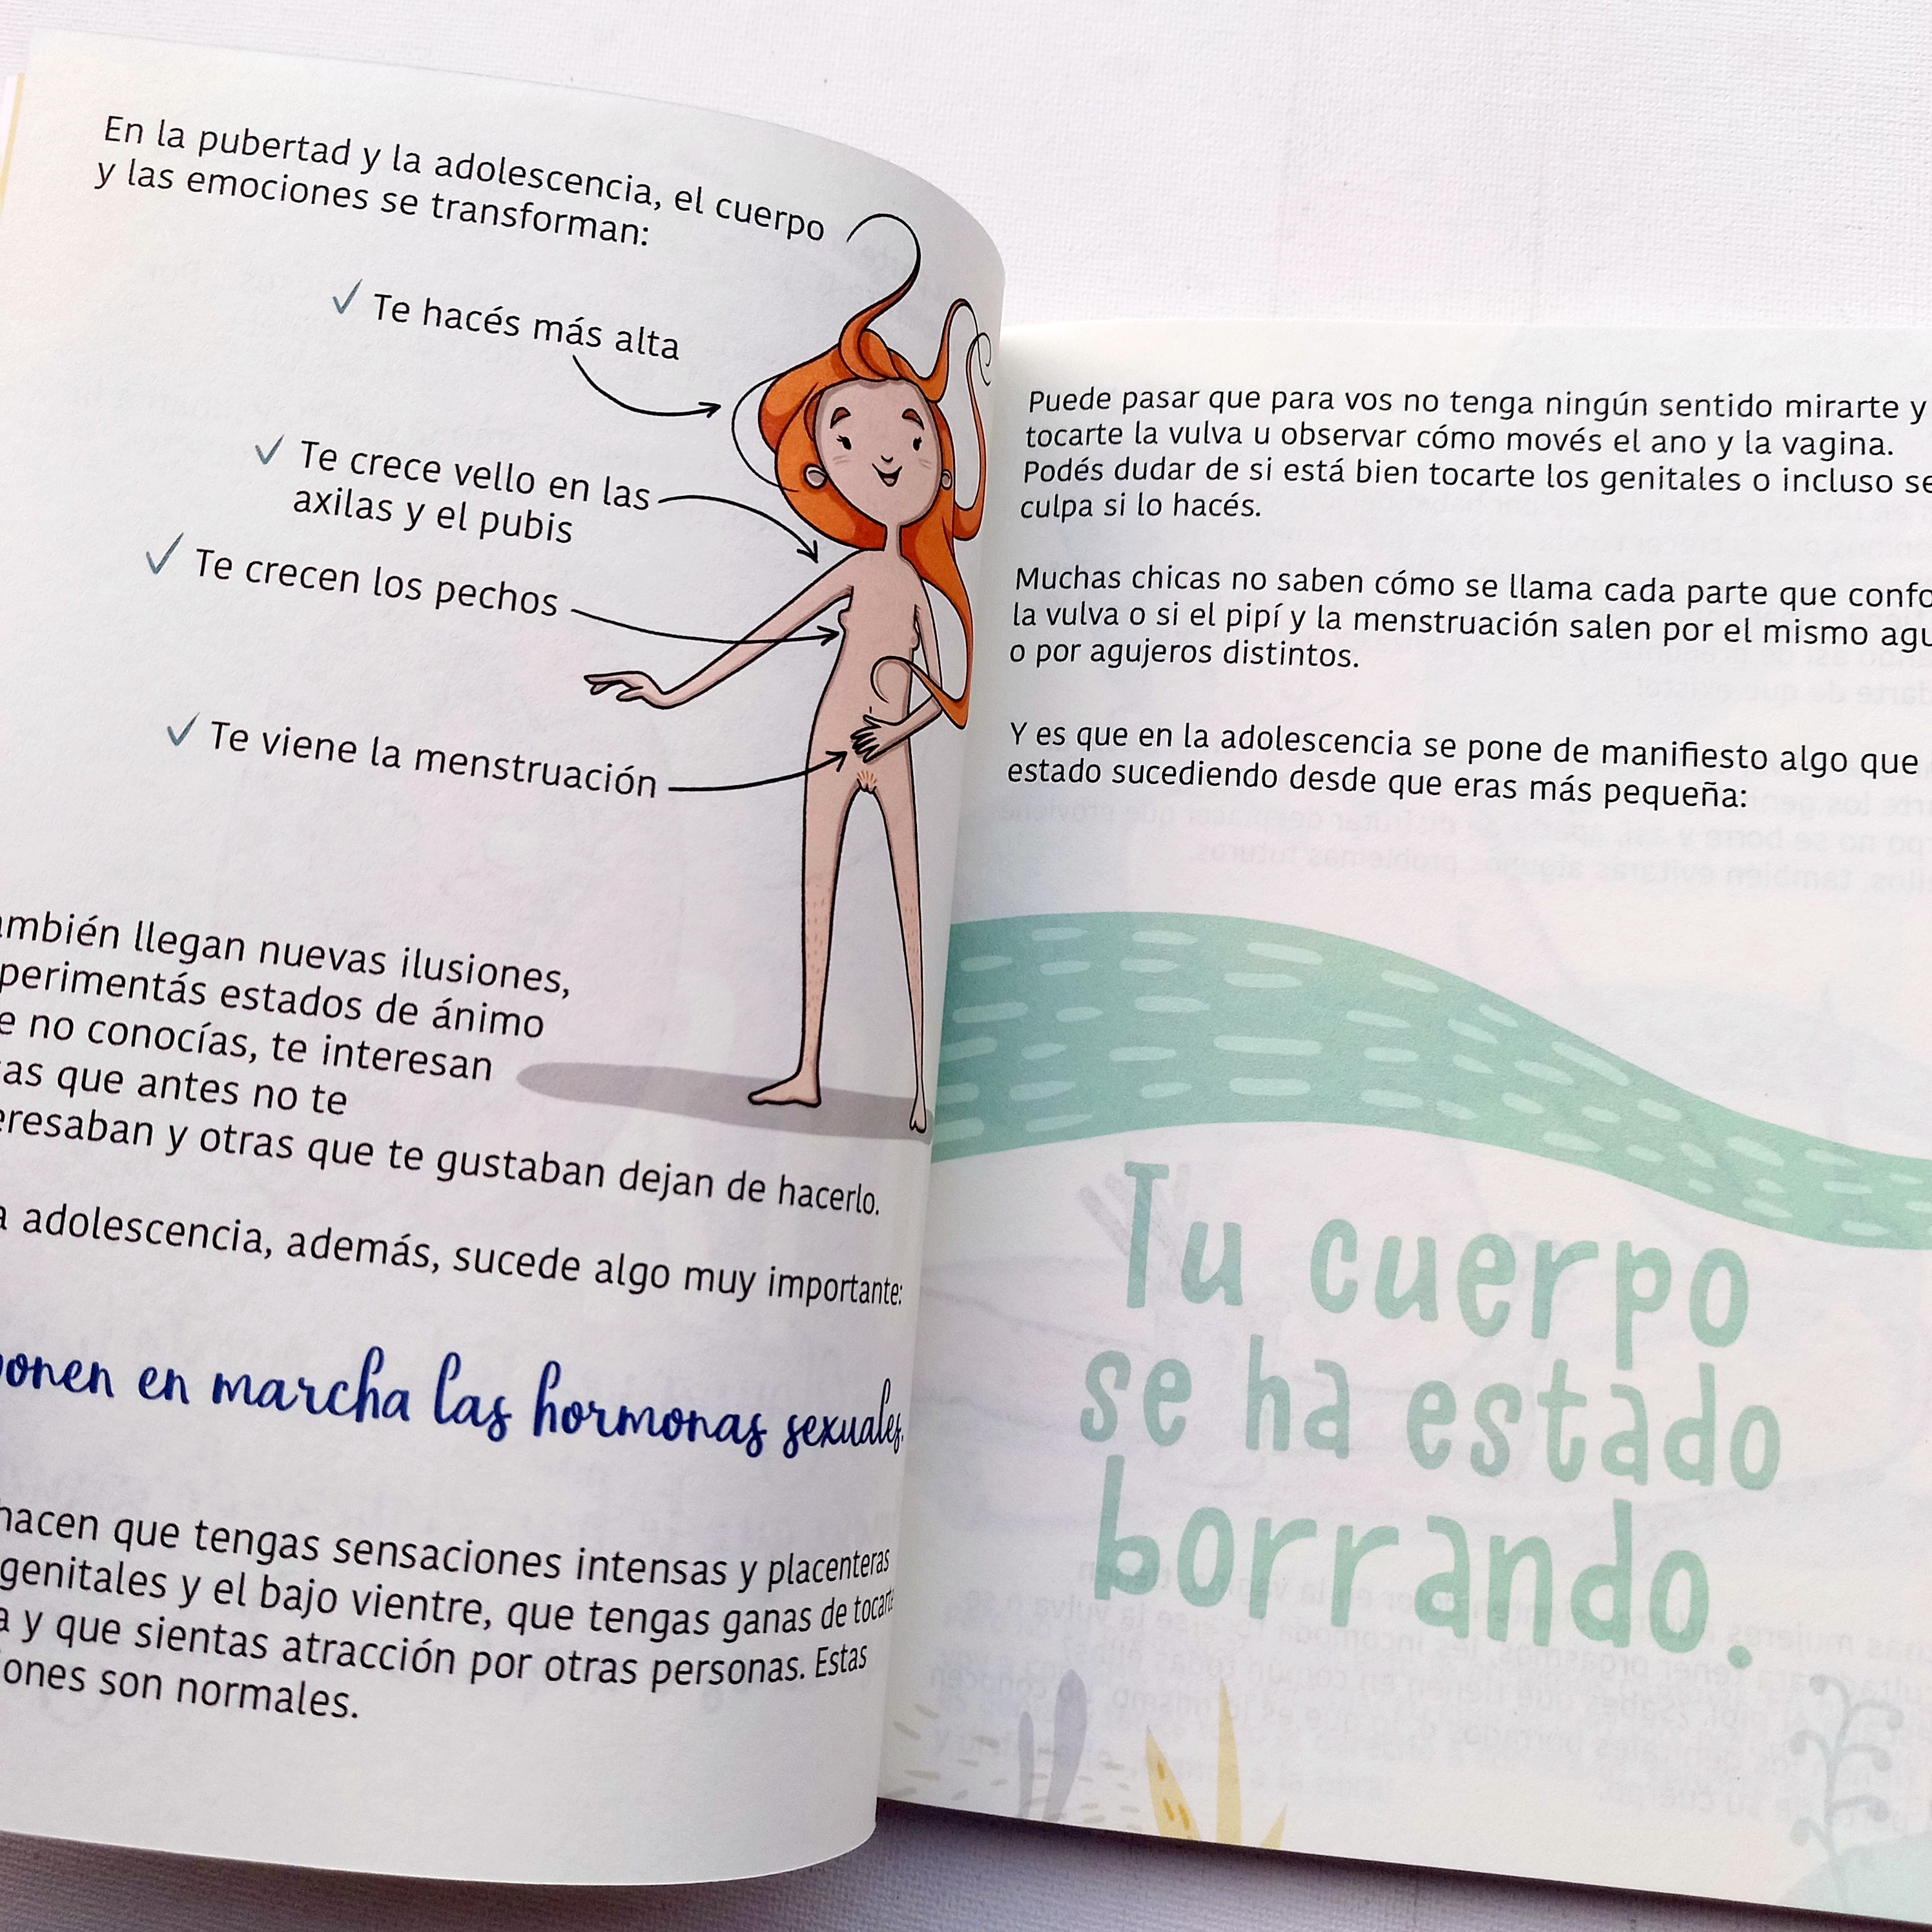 En la pubertad y la adolescencia, el cuerpo
y las emociones se transforman:
✓ Te hacés más alta
✓ Te crece vello en las
axilas y el pubis
✓ Te crecen los pechos
✓ Te viene la menstruación
llegan nuevas ilusiones,
estados de ánimo
no conocías, te interesan
que antes no te
y otras que te gustaban dejan de hacerlo.
adolescencia, además, sucede algo muy importante:
en marcha las hormonas sexuales.
hacen que tengas sensaciones intensas y placenteras
genitales y el bajo vientre, que tengas ganas de
y que sientas atracción por otras personas. Estas
son normales.
Puede pasar que para vos no tenga ningún sentido mirarte y
tocarte la vulva u observar cómo movés el ano y la vagina.
Podés dudar de si está bien tocarte los genitales o incluso
culpa si lo hacés.
Muchas chicas no saben cómo se llama cada parte que
la vulva o si el pipí y la menstruación salen por el mismo
o por agujeros distintos.
Y es que en la adolescencia se pone de manifiesto algo que
estado sucediendo desde que eras más pequeña:
Tu cuerpo
se ha estado
borrando.